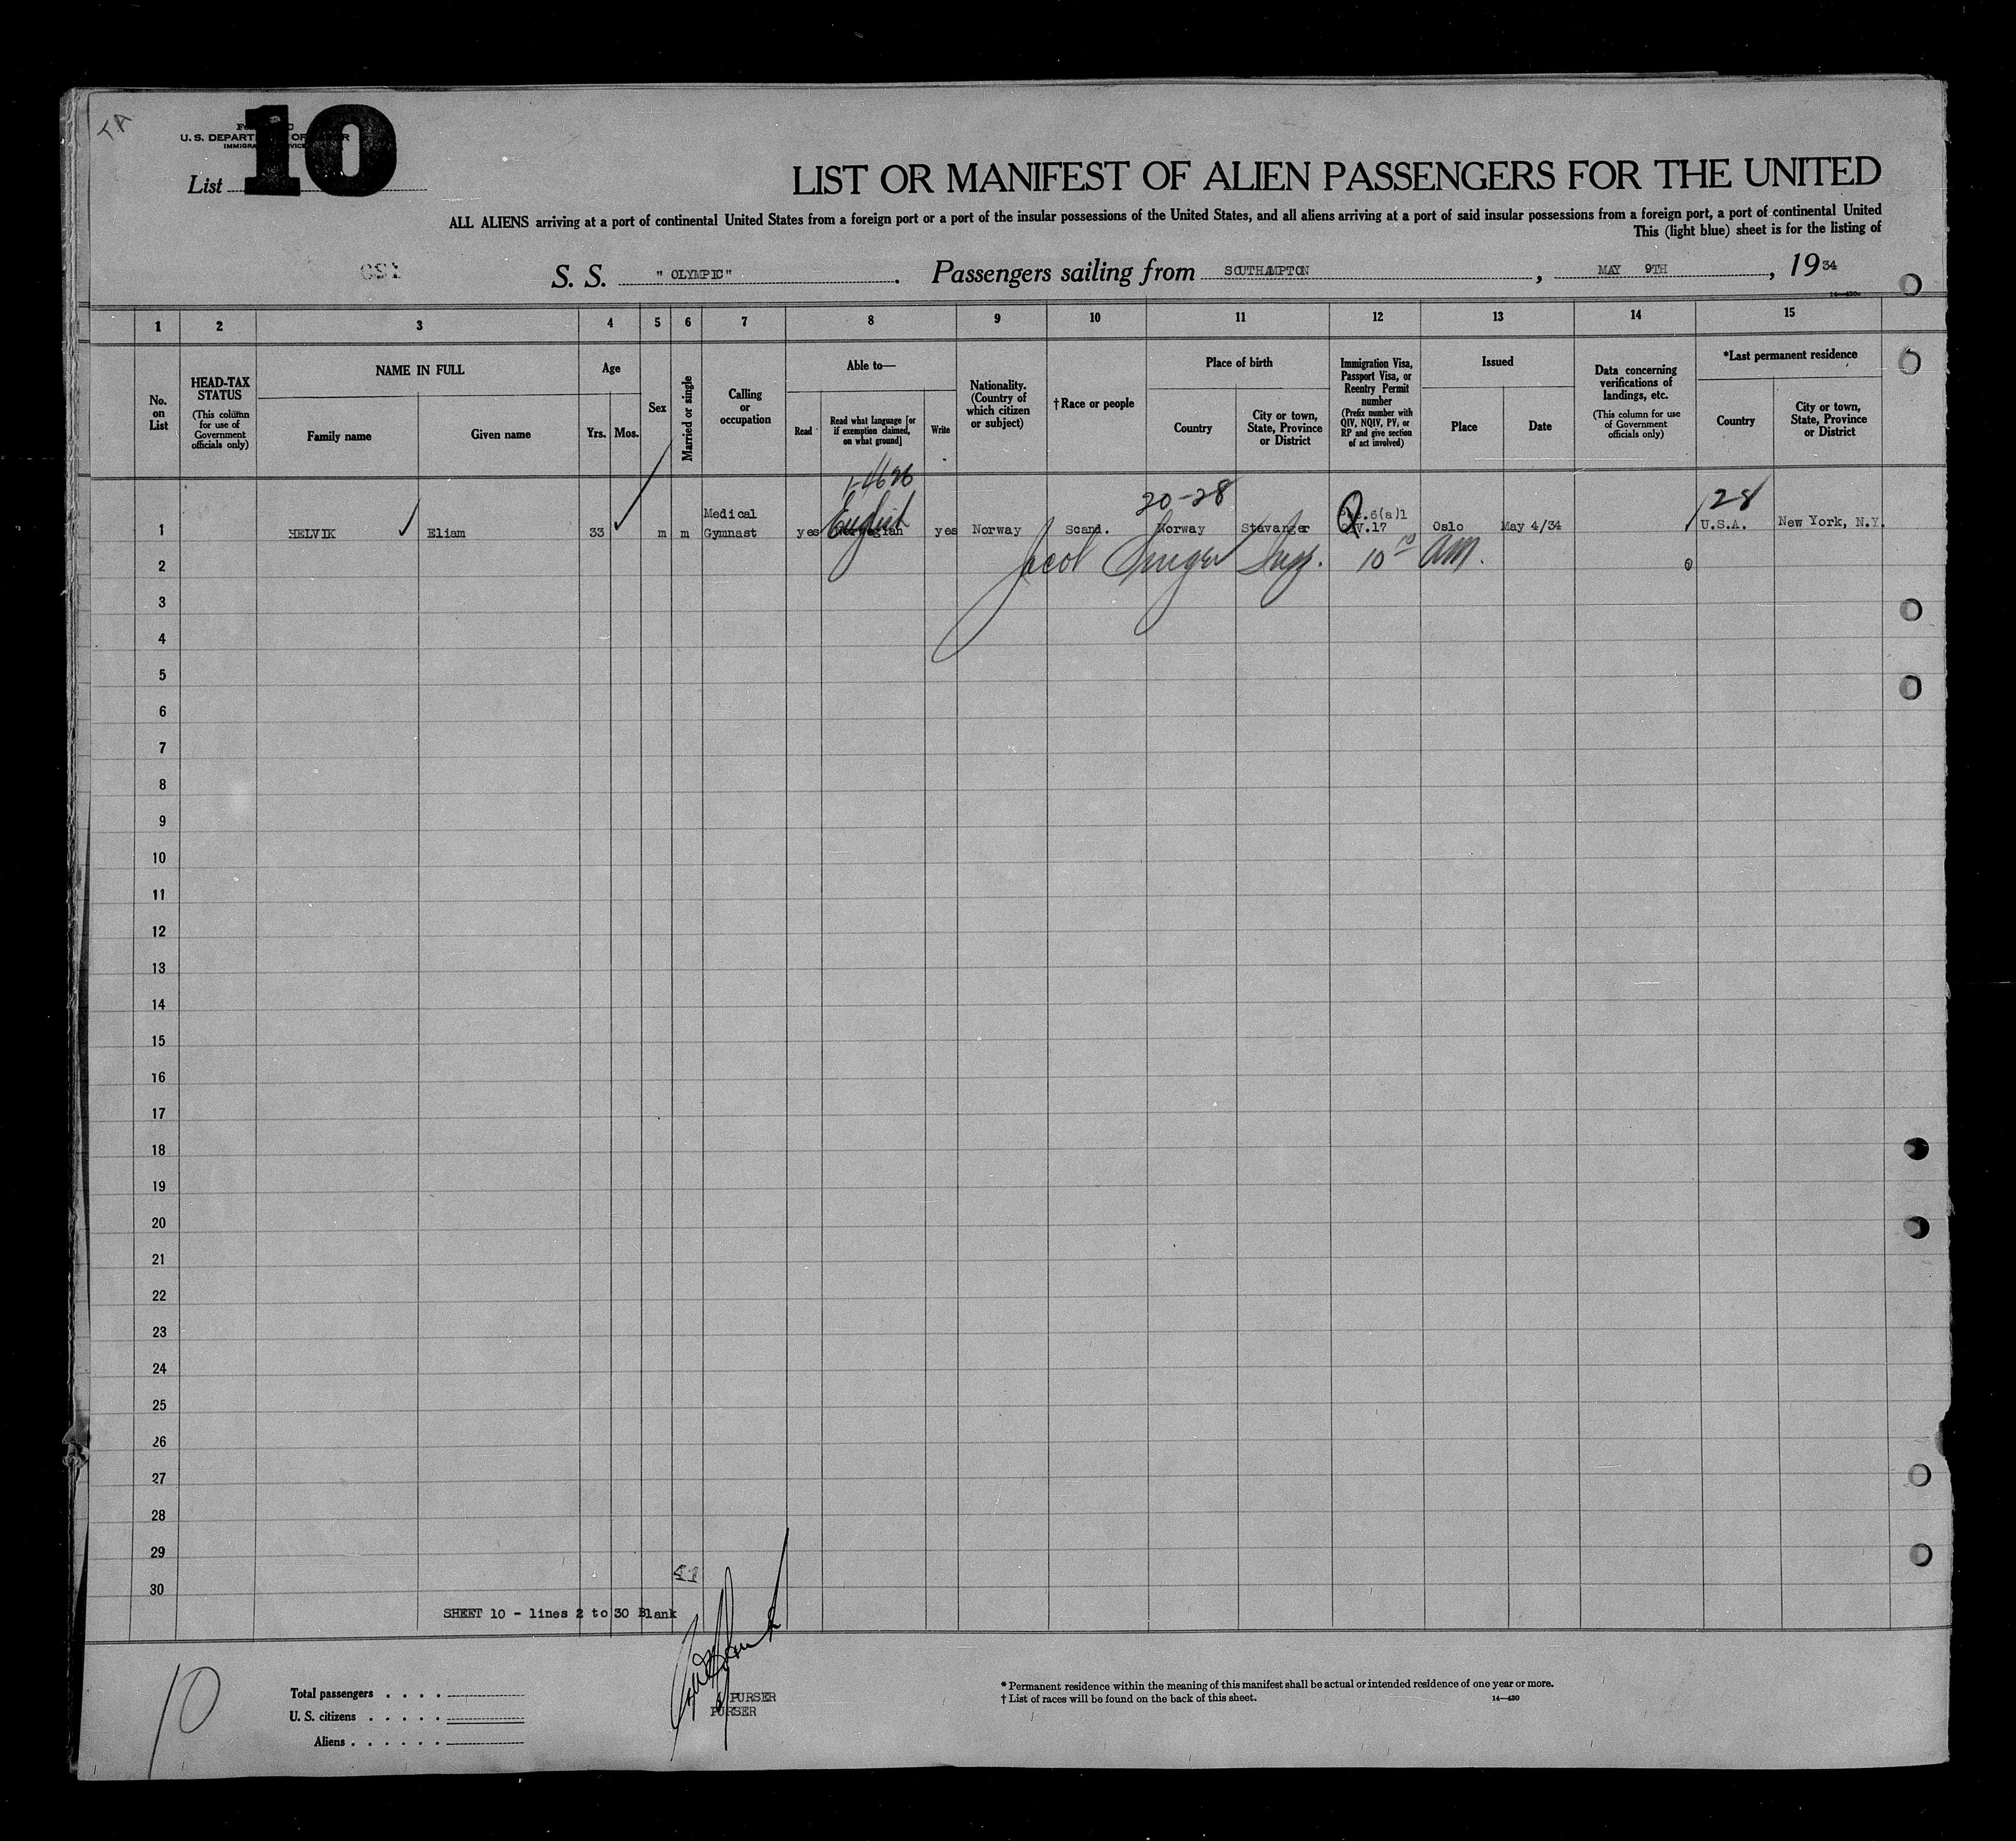 TA
10
U. S. DEPART
IMMIGRA
List
LIST OR MANIFEST OF ALIEN PASSENGERS FOR THE UNITED
ALL ALIENS arriving at a port of continental United States from a foreign port or a port of the insular possessions of the United States, and all aliens arriving at a port of said insular possessions from a foreign port, a port of continental United
This (light blue) sheet is for the listing of
S. S. "OLYMPIC". Passengers sailing from SOUTHAMPTON, MAY 9TH, 1934
1 2 3 4 5 6 7 8 9 10 11 12 13 14 15
No. on List
HEAD-TAX STATUS
(This column for use of Government officials only)
NAME IN FULL
Family name Given name
Age
Yrs. Mos.
Sex
Married or single
Calling or occupation
Able to—
Read
Read what language [or if exemption claimed, on what ground]
Write
Nationality. (Country of which citizen or subject)
†Race or people
Place of birth
Country
City or town, State, Province or District
Immigration Visa, Passport Visa, or Reentry Permit number
(Prefix number with QIV, NQIV, PV, or RP and give section of act involved)
Issued
Place Date
Data concerning verifications of landings, etc.
(This column for use of Government officials only)
*Last permanent residence
Country
City or town, State, Province or District
20-28
128
1 HELVIK Eliam 33 m m Medical Gymnast yes English Norwegian yes Norway Scand. Norway Stavanger Sec.6(a)1 QIV.17 Oslo May 4/34 U.S.A. New York, N.Y.
10 10 AM.
2
3
4
5
6
7
8
9
10
11
12
13
14
15
16
17
18
19
20
21
22
23
24
25
26
27
28
29
30
SHEET 10 - lines 2 to 30 Blank
10
Total passengers
U. S. citizens
Aliens
PURSER
PURSER
* Permanent residence within the meaning of this manifest shall be actual or intended residence of one year or more.
† List of races will be found on the back of this sheet.
14—430